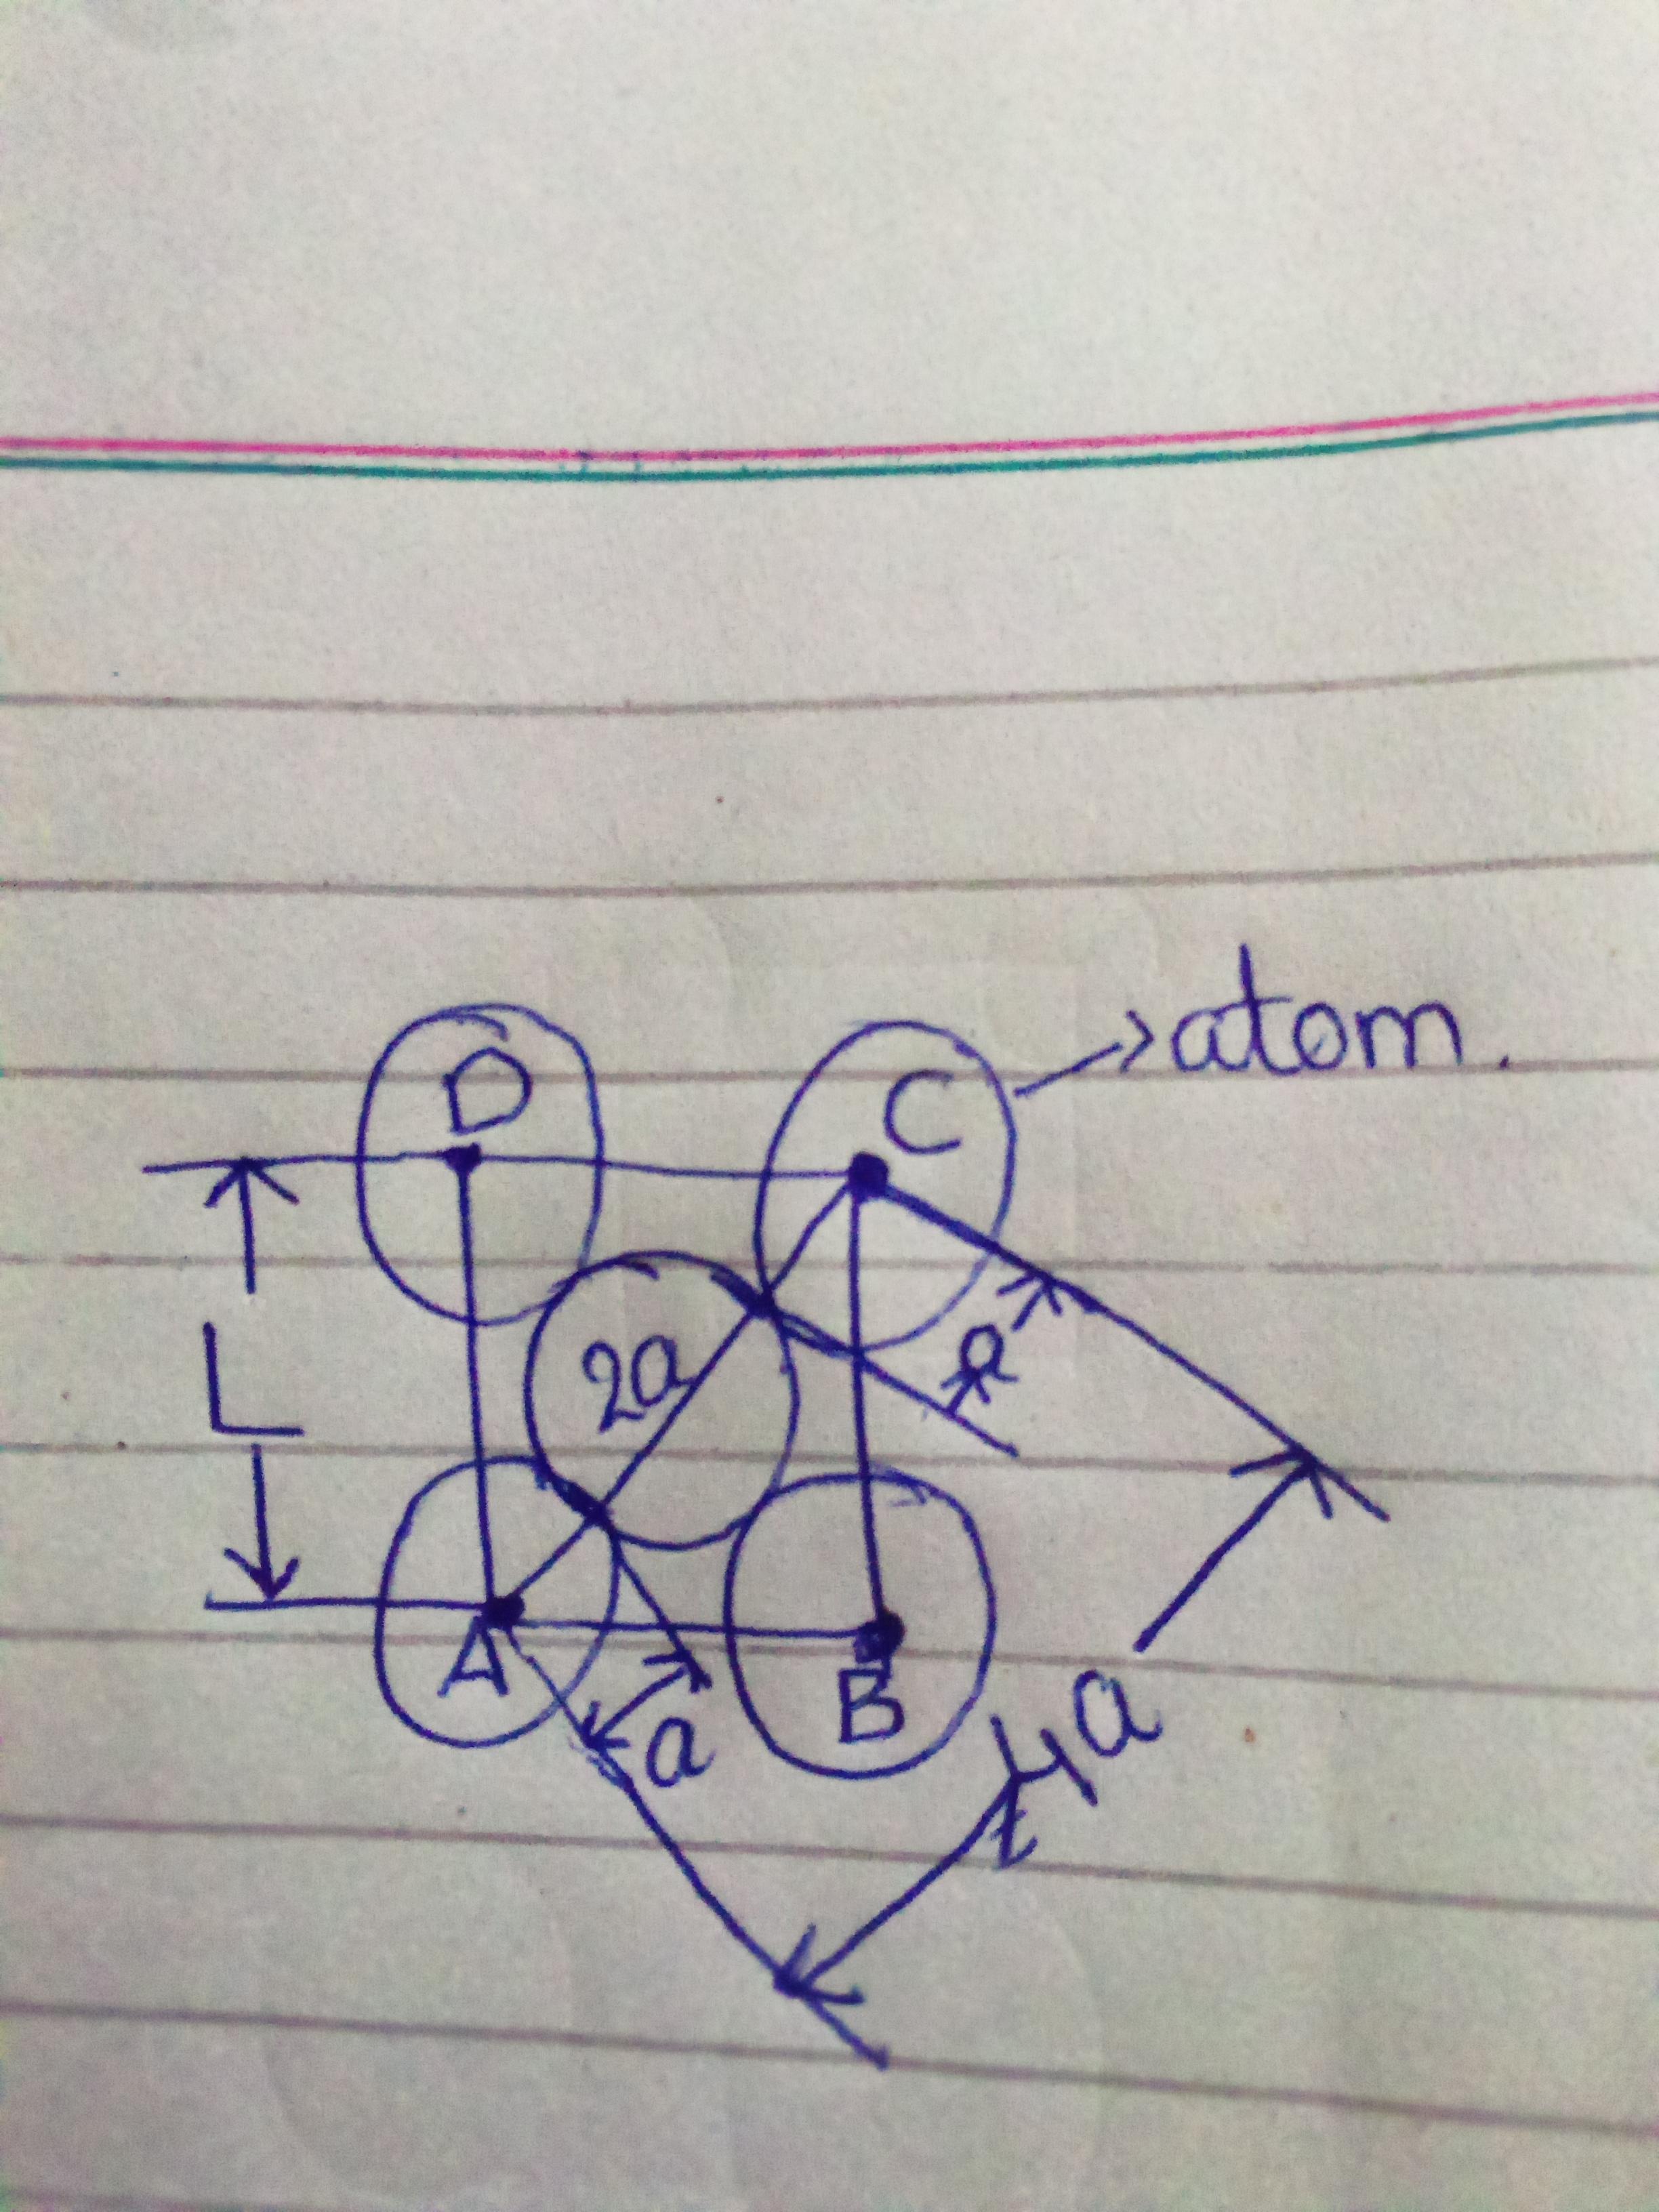 D
C
atom.
L
2a
a
A
B
a
4a